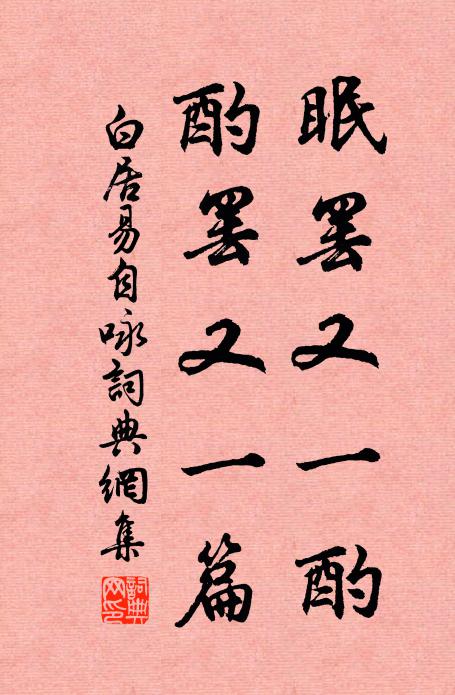 眠罢又一酌
酌罢又一篇
白居易自咏詞典網集
詞典
网印